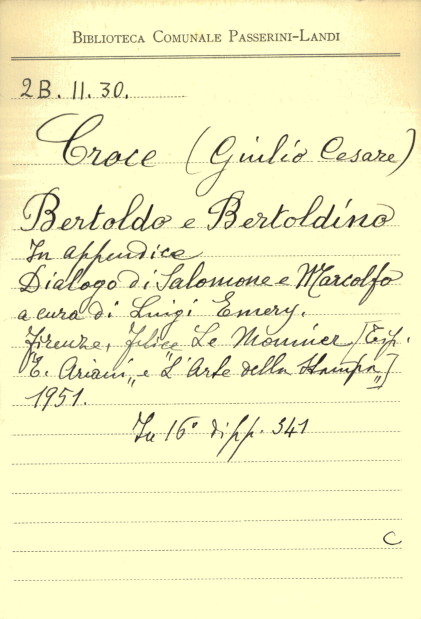 BIBLIOTECA COMUNALE PASSERINI-LANDI
2B. II. 30.
Croce (Giulio Cesare)
Bertoldo e Bertoldino
In appendice
Dialogo di Salomone e Marcolfo
a cura di Luigi Emery.
Firenze, Felice Le Monnier [Tip.
"E. Ariani" e "L'Arte della Stampa"]
1951.
In 16° di pp. 341
C